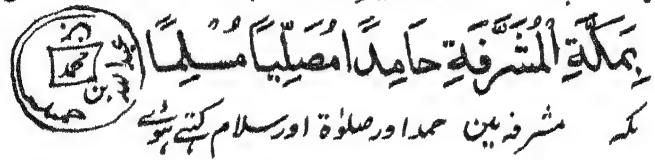 بِمَكَّةِ الْمُشَرَّفَةِ حَامِدًا مُصَلِّيًا مُسْلِمًا
مکہ مشرفہ میں حمد اور صلوٰۃ اور سلام کہتے ہوئے
محمد
عبد اللہ بن